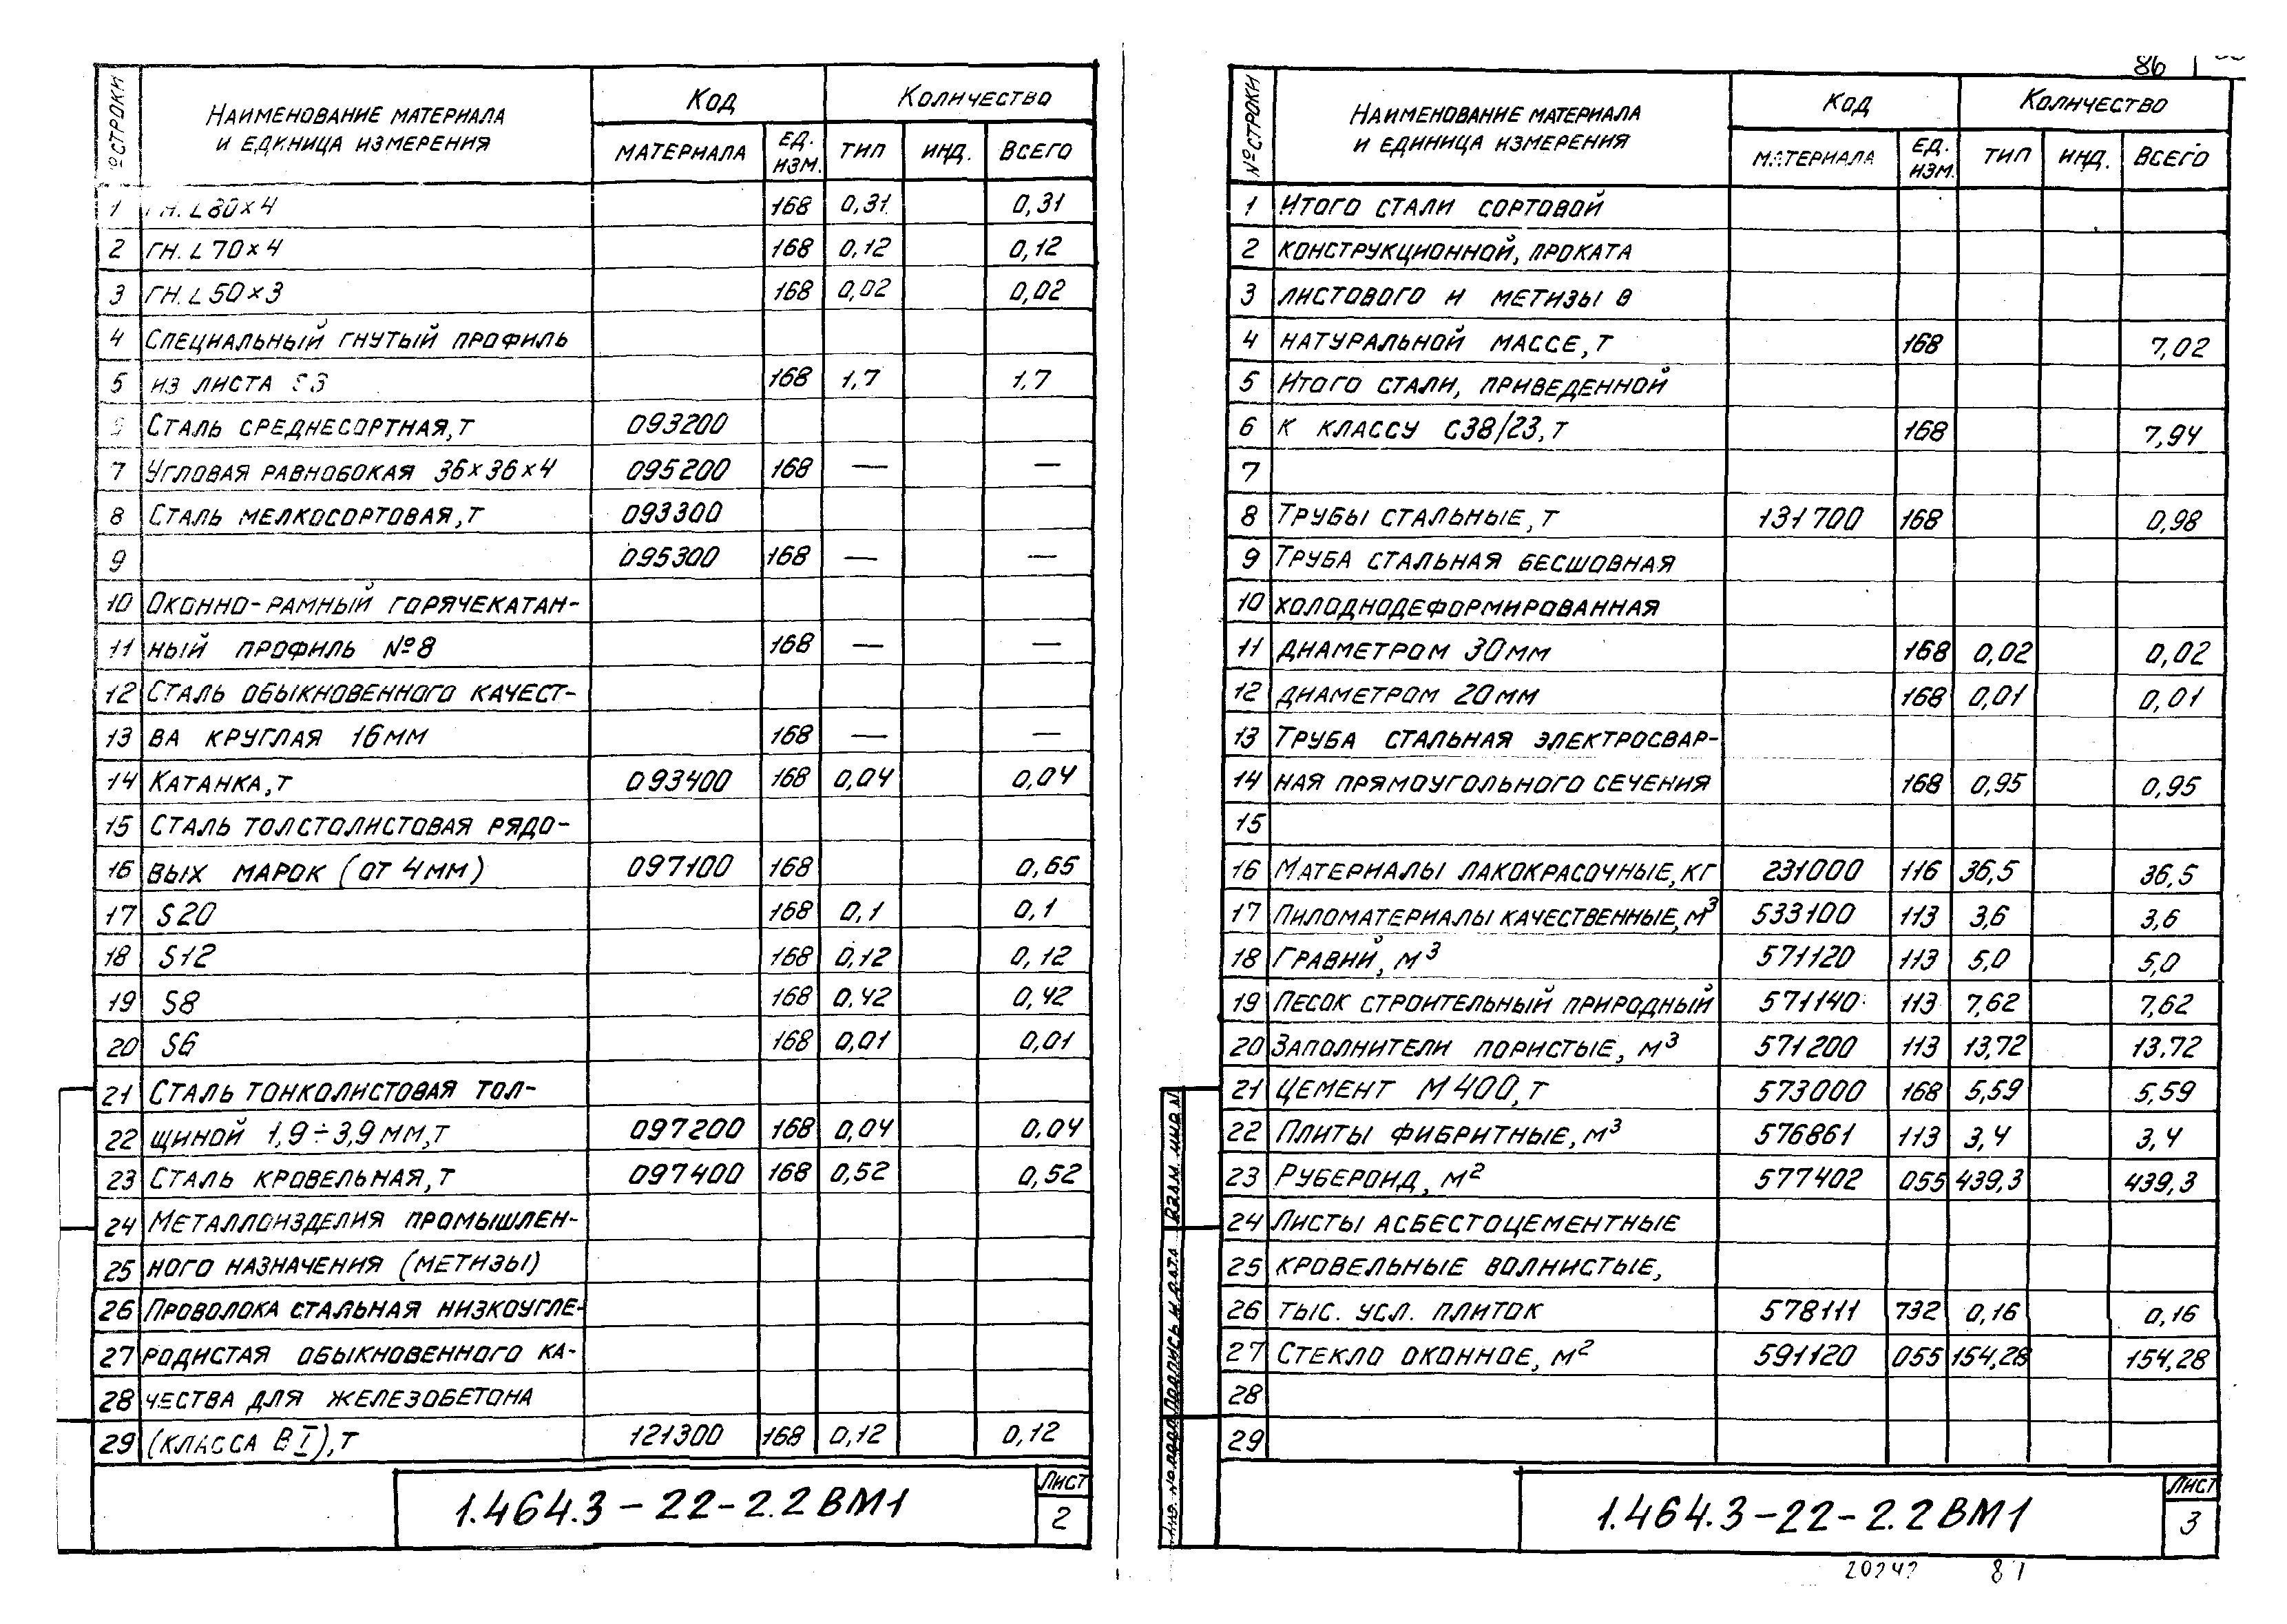 № СТРОКИ | НАИМЕНОВАНИЕ МАТЕРИАЛА И ЕДИНИЦА ИЗМЕРЕНИЯ | КОД | КОЛИЧЕСТВО
МАТЕРИАЛА | ЕД. ИЗМ. | ТИП | ИНД. | ВСЕГО
1 ГН. L 80×4 168 0,31 0,31
2 ГН. L 70×4 168 0,12 0,12
3 ГН. L 50×3 168 0,02 0,02
4 СПЕЦИАЛЬНЫЙ ГНУТЫЙ ПРОФИЛЬ
5 ИЗ ЛИСТА S3 168 1,7 1,7
6 СТАЛЬ СРЕДНЕСОРТНАЯ, Т 093200
7 УГЛОВАЯ РАВНОБОКАЯ 36×36×4 095200 168 — —
8 СТАЛЬ МЕЛКОСОРТОВАЯ, Т 093300
9 095300 168 — —
10 ОКОННО-РАМНЫЙ ГОРЯЧЕКАТАН-
11 НЫЙ ПРОФИЛЬ №8 168 — —
12 СТАЛЬ ОБЫКНОВЕННОГО КАЧЕСТ-
13 ВА КРУГЛАЯ 16 ММ 168 — —
14 КАТАНКА, Т 093400 168 0,04 0,04
15 СТАЛЬ ТОЛСТОЛИСТОВАЯ РЯДО-
16 ВЫХ МАРОК (ОТ 4 ММ) 097100 168 0,65
17 S20 168 0,1 0,1
18 S12 168 0,12 0,12
19 S8 168 0.42 0,42
20 S6 168 0,01 0,01
21 СТАЛЬ ТОНКОЛИСТОВАЯ ТОЛ-
22 ЩИНОЙ 1,9÷3,9 ММ, Т 097200 168 0,04 0,04
23 СТАЛЬ КРОВЕЛЬНАЯ, Т 097400 168 0,52 0,52
24 МЕТАЛЛОИЗДЕЛИЯ ПРОМЫШЛЕН-
25 НОГО НАЗНАЧЕНИЯ (МЕТИЗЫ)
26 ПРОВОЛОКА СТАЛЬНАЯ НИЗКОУГЛЕ-
27 РОДИСТАЯ ОБЫКНОВЕННОГО КА-
28 ЧЕСТВА ДЛЯ ЖЕЛЕЗОБЕТОНА
29 (КЛАССА ВI), Т 121300 168 0,12 0,12
1.464.3-22-2.2 ВМ1
ЛИСТ
2
86
№ СТРОКИ | НАИМЕНОВАНИЕ МАТЕРИАЛА И ЕДИНИЦА ИЗМЕРЕНИЯ | КОД | КОЛИЧЕСТВО
МАТЕРИАЛА | ЕД. ИЗМ. | ТИП | ИНД. | ВСЕГО
1 ИТОГО СТАЛИ СОРТОВОЙ
2 КОНСТРУКЦИОННОЙ, ПРОКАТА
3 ЛИСТОВОГО И МЕТИЗЫ В
4 НАТУРАЛЬНОЙ МАССЕ, Т 168 7,02
5 ИТОГО СТАЛИ, ПРИВЕДЕННОЙ
6 К КЛАССУ С38/23, Т 168 7,94
7
8 ТРУБЫ СТАЛЬНЫЕ, Т 131700 168 0,98
9 ТРУБА СТАЛЬНАЯ БЕСШОВНАЯ
10 ХОЛОДНОДЕФОРМИРОВАННАЯ
11 ДИАМЕТРОМ 30 ММ 168 0,02 0,02
12 ДИАМЕТРОМ 20 ММ 168 0,01 0,01
13 ТРУБА СТАЛЬНАЯ ЭЛЕКТРОСВАР-
14 НАЯ ПРЯМОУГОЛЬНОГО СЕЧЕНИЯ 168 0,95 0,95
15
16 МАТЕРИАЛЫ ЛАКОКРАСОЧНЫЕ, КГ 231000 116 36,5 36,5
17 ПИЛОМАТЕРИАЛЫ КАЧЕСТВЕННЫЕ, М³ 533100 113 3,6 3,6
18 ГРАВИЙ, М³ 571120 113 5,0 5,0
19 ПЕСОК СТРОИТЕЛЬНЫЙ ПРИРОДНЫЙ 571140 113 7,62 7,62
20 ЗАПОЛНИТЕЛИ ПОРИСТЫЕ, М³ 571200 113 13,72 13.72
21 ЦЕМЕНТ М400, Т 573000 168 5,59 5,59
22 ПЛИТЫ ФИБРИТНЫЕ, М³ 576861 113 3,4 3,4
23 РУБЕРОИД, М² 577402 055 439,3 439,3
24 ЛИСТЫ АСБЕСТОЦЕМЕНТНЫЕ
25 КРОВЕЛЬНЫЕ ВОЛНИСТЫЕ,
26 ТЫС. УСЛ. ПЛИТОК 578111 732 0,16 0,16
27 СТЕКЛО ОКОННОЕ, М² 591120 055 154,28 154,28
28
29
ВЗАМ. ИНВ. №
ПОДПИСЬ И ДАТА
ИНВ. № ПОДЛ.
1.464.3-22-2.2 ВМ1
ЛИСТ
3
20242 87